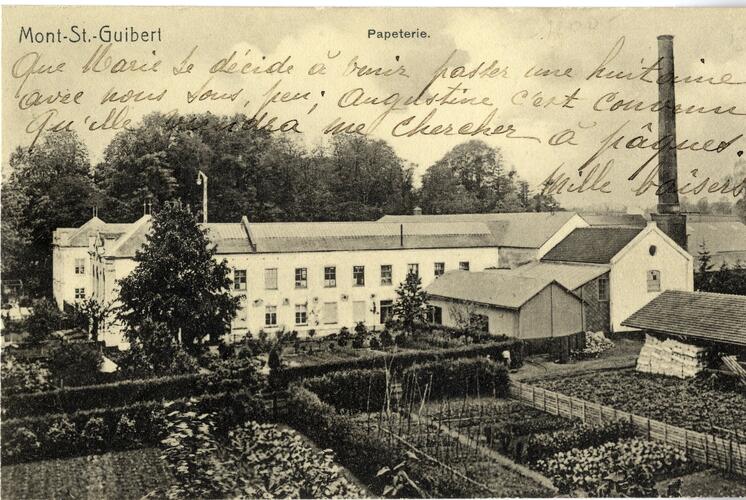 Mont-St.-Guibert
Papeterie.
Que Marie se décide à venir passer une huitaine
avec nous sous, peu; Augustine c'est convenu
qu'elle viendra me chercher à pâques.
Mille baisers